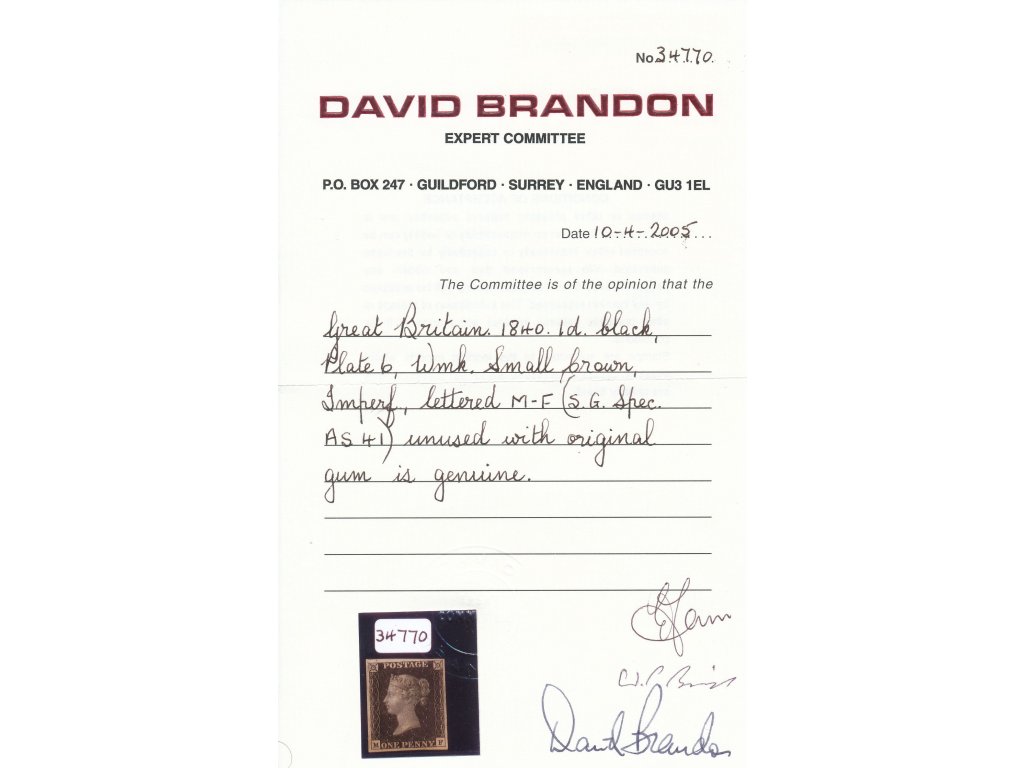 No 34770
DAVID BRANDON
EXPERT COMMITTEE
P.O. BOX 247 · GUILDFORD · SURREY · ENGLAND · GU3 1EL
Date 10-4-2005
The Committee is of the opinion that the
Great Britain. 1840. 1d. black,
Plate 6, Wmk. Small crown,
Imperf, lettered M-F (S.G. Spec.
AS 41) unused with original
gum is genuine.
34770
POSTAGE
M ONE PENNY F
David Brandon